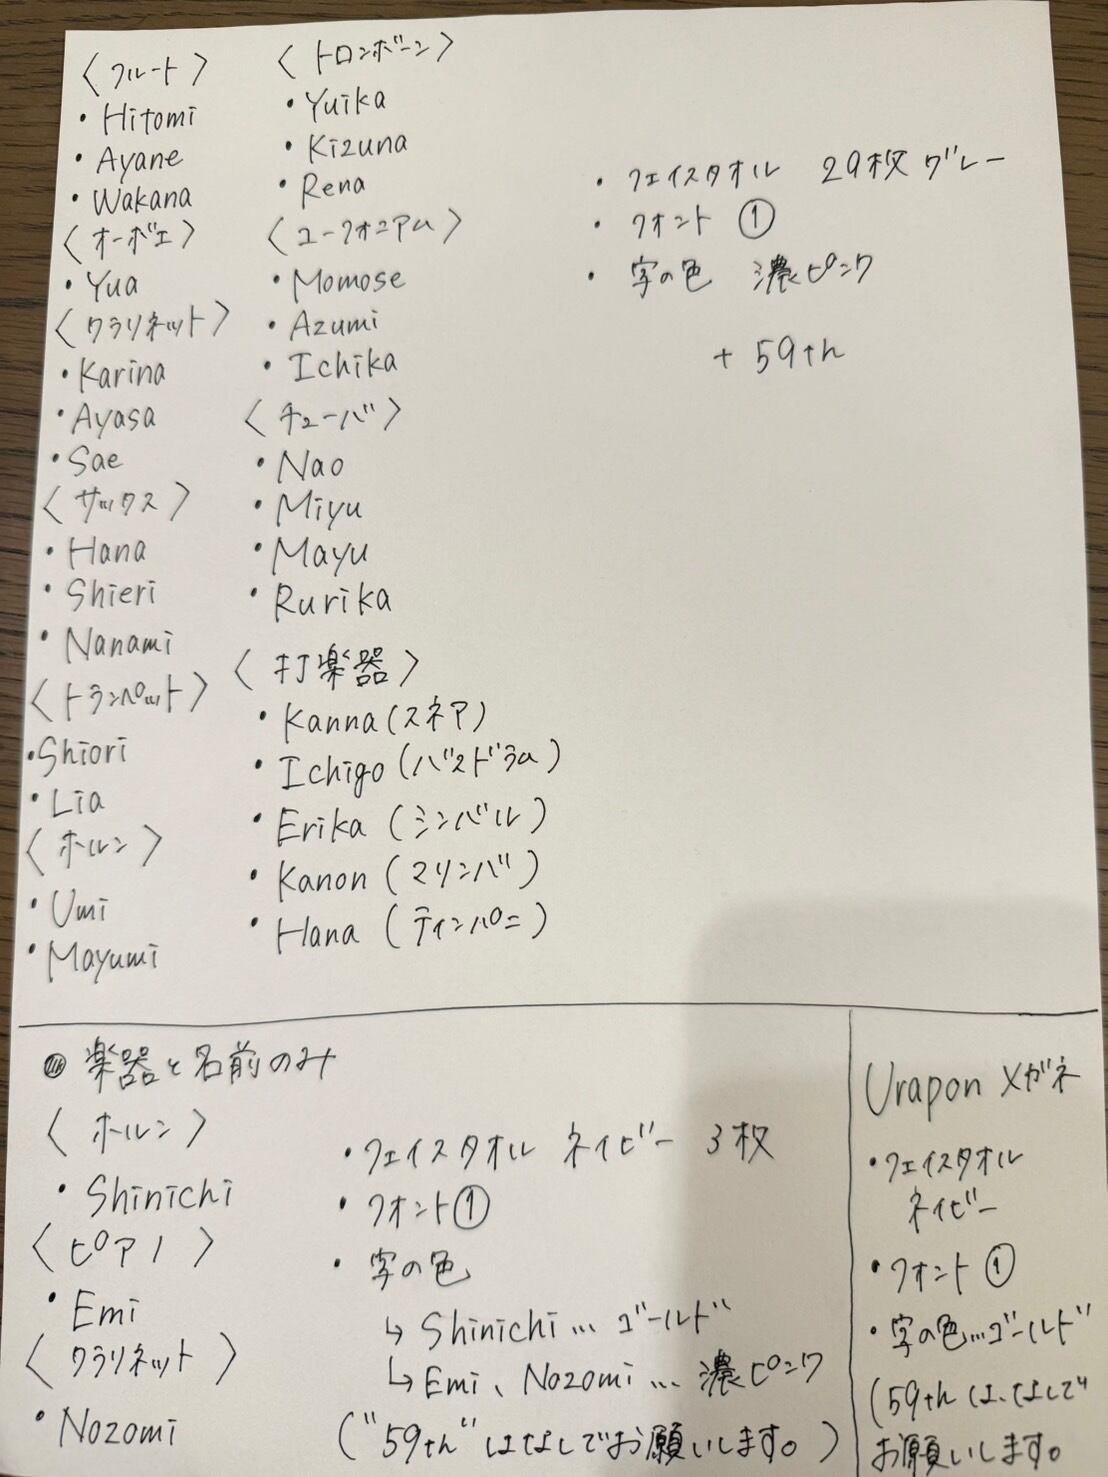 〈フルート〉
・Hitomi
・Ayane
・Wakana
〈オーボエ〉
・Yua
〈クラリネット〉
・Karina
・Ayasa
・Sae
〈サックス〉
・Hana
・Shieri
・Nanami
〈トランペット〉
・Shiori
・Lia
〈ホルン〉
・Umi
・Mayumi
〈トロンボーン〉
・Yuika
・Kizuna
・Rena
〈ユーフォニアム〉
・Momose
・Azumi
・Ichika
〈チューバ〉
・Nao
・Miyu
・Mayu
・Rurika
〈打楽器〉
・Kanna(スネア)
・Ichigo(バスドラム)
・Erika(シンバル)
・Kanon(マリンバ)
・Hana(ティンパニ)
・フェイスタオル 29枚 グレー
・フォント ①
・字の色 濃ピンク
+ 59th
● 楽器と名前のみ
〈ホルン〉
・Shinichi
〈ピアノ〉
・Emi
〈クラリネット〉
・Nozomi
・フェイスタオル ネイビー 3枚
・フォント①
・字の色
↳ Shinichi… ゴールド
↳ Emi、Nozomi… 濃ピンク
("59th"はなしでお願いします。)
Urapon メガネ
・フェイスタオル
ネイビー
・フォント ①
・字の色…ゴールド
(59thは、なしで
お願いします。